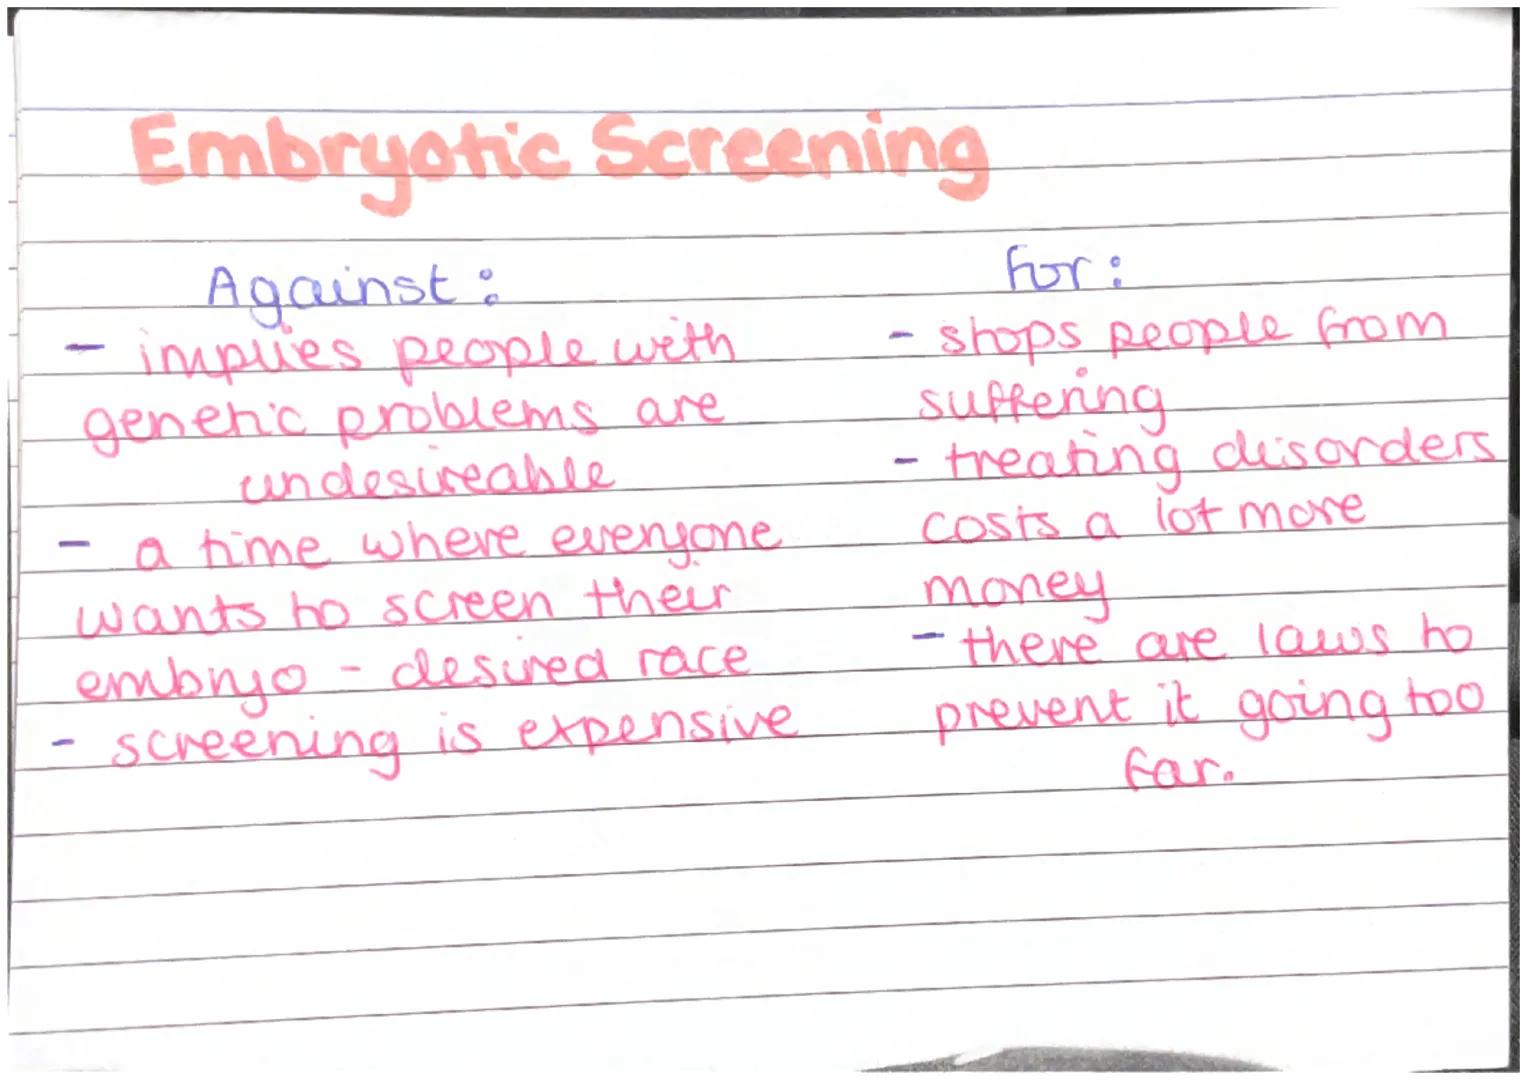 Embryotic Screening
Against:
- implies people with
genetic problems are
undesireable
- a time where everyone
wants to screen their
embryo - desired race
- screening is expensive
For:
- stops people from
suffering
- treating disorders
costs a lot more
money
- there are laws to
prevent it going too
far.